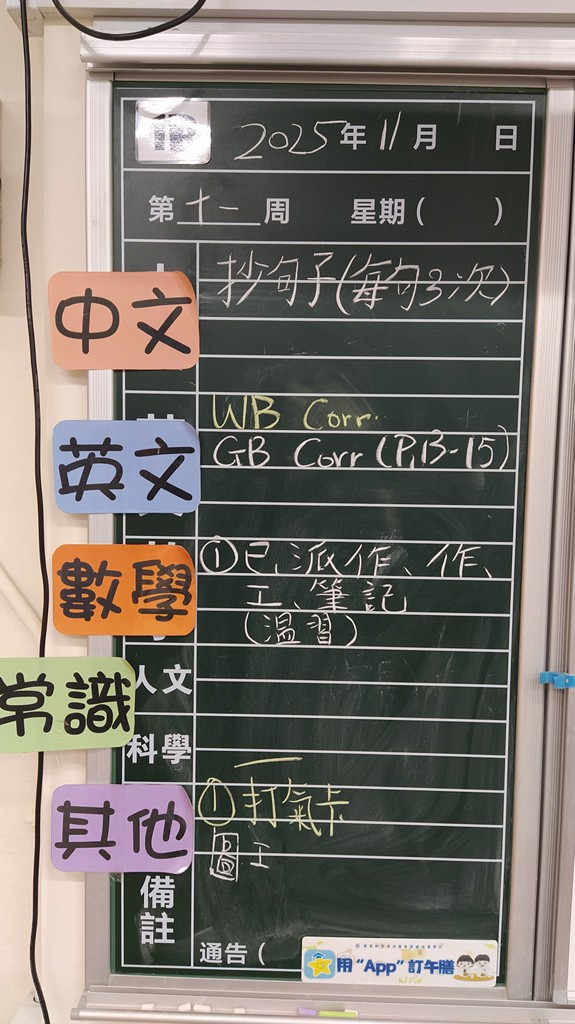 2025年11月 日
第十一周 星期( )
中文
抄句子(每句3次)
英文
WB Corr.
GB Corr (P.13-15)
數學
①已派作、作、
工、筆記
(溫習)
人文
常識
科學
其他
①打氣卡
圖工
備註
通告(
用“App”訂午膳